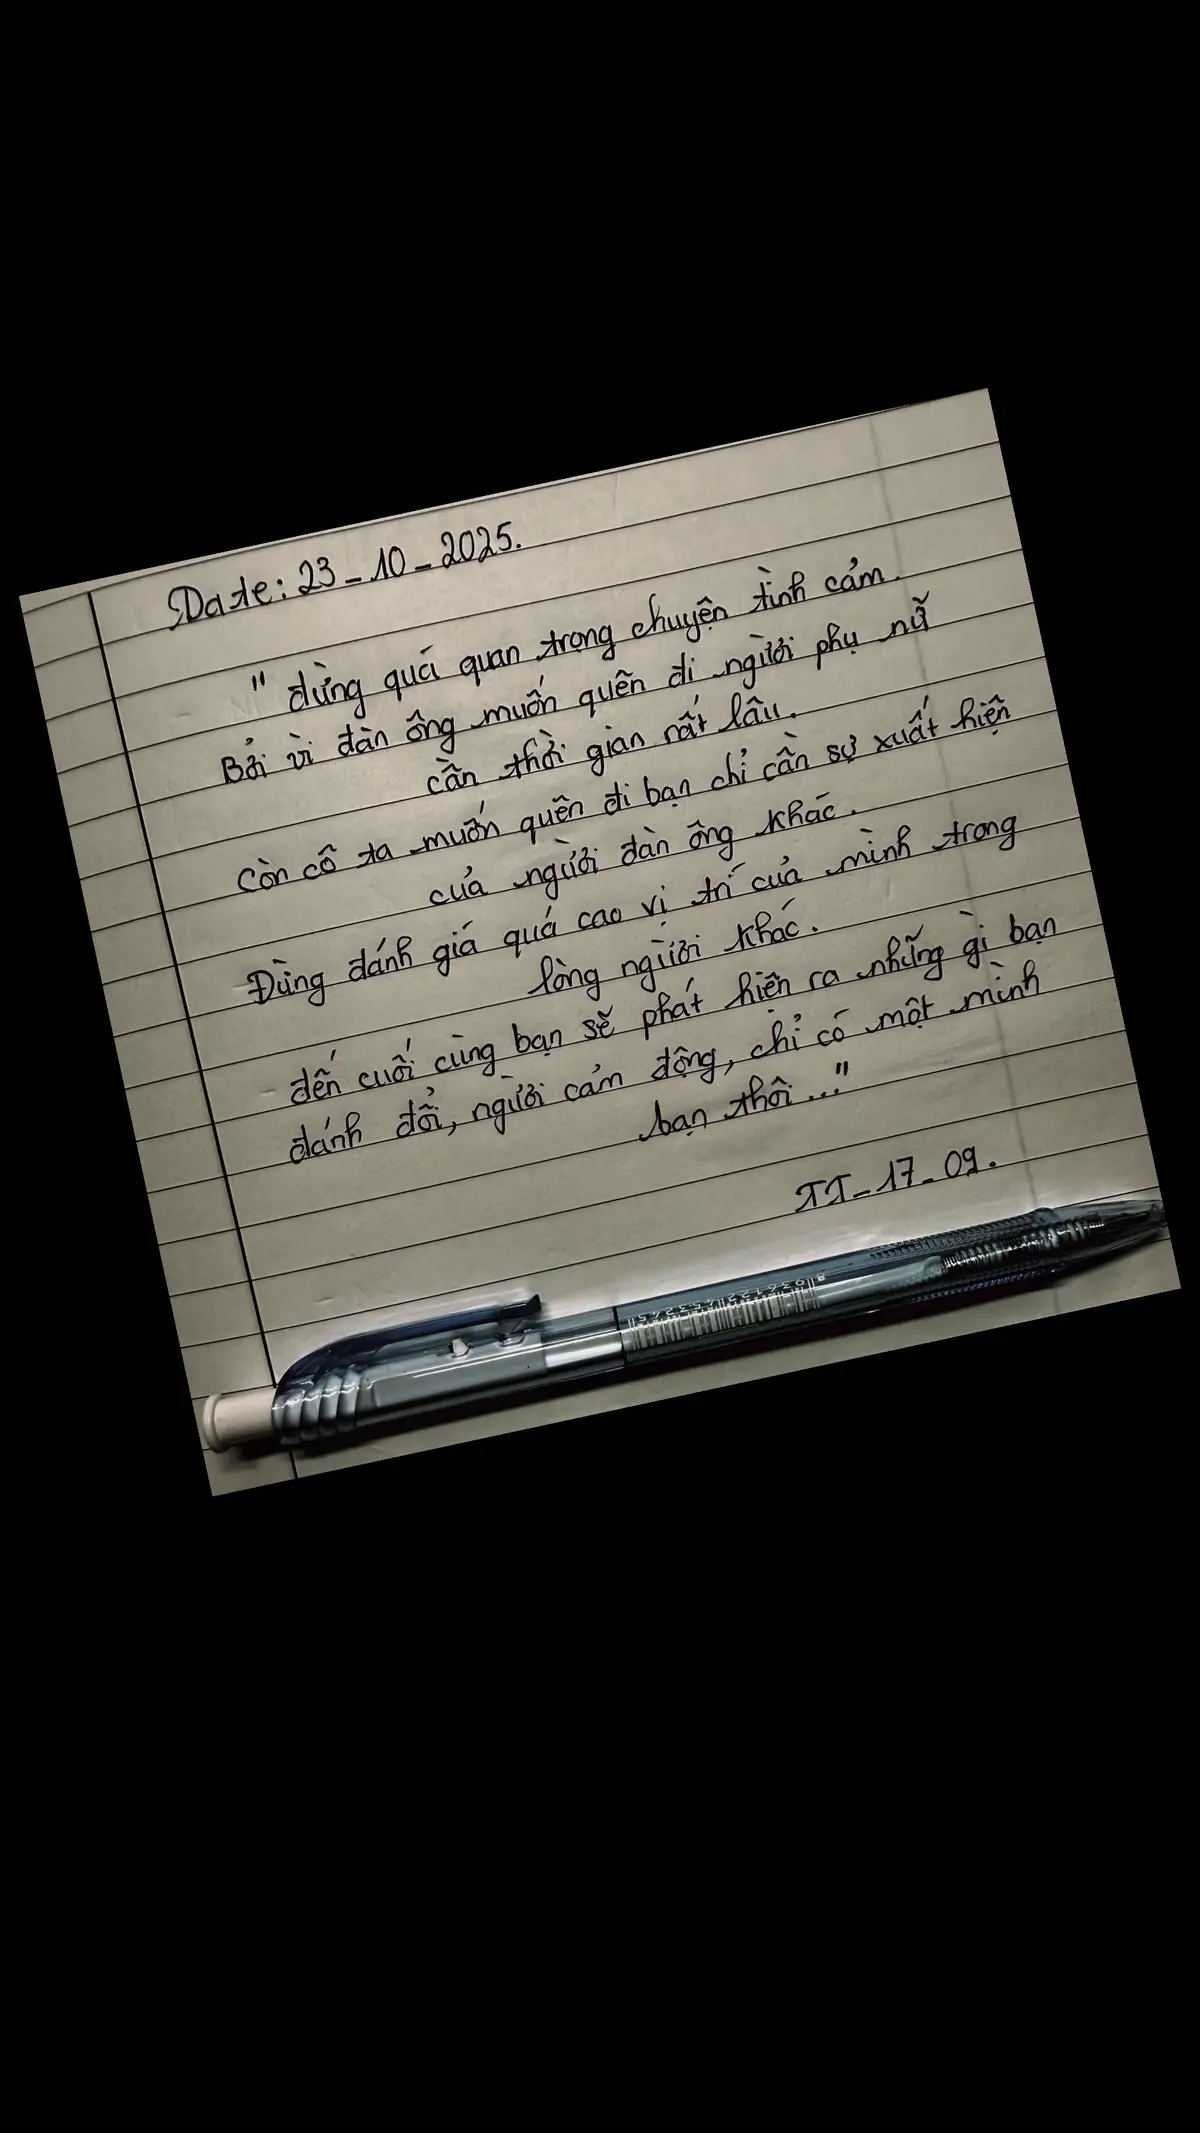 Date: 23-10-2025.
" đừng quá quan trọng chuyện tình cảm.
Bởi vì đàn ông muốn quên đi người phụ nữ
cần thời gian rất lâu.
Còn cô ta muốn quên đi bạn chỉ cần sự xuất hiện
của người đàn ông khác.
Đừng đánh giá quá cao vị trí của mình trong
lòng người khác.
đến cuối cùng bạn sẽ phát hiện ra những gì bạn
đánh đổi, người cảm động, chỉ có một mình
bạn thôi..."
TT-17-09.
8936122453245